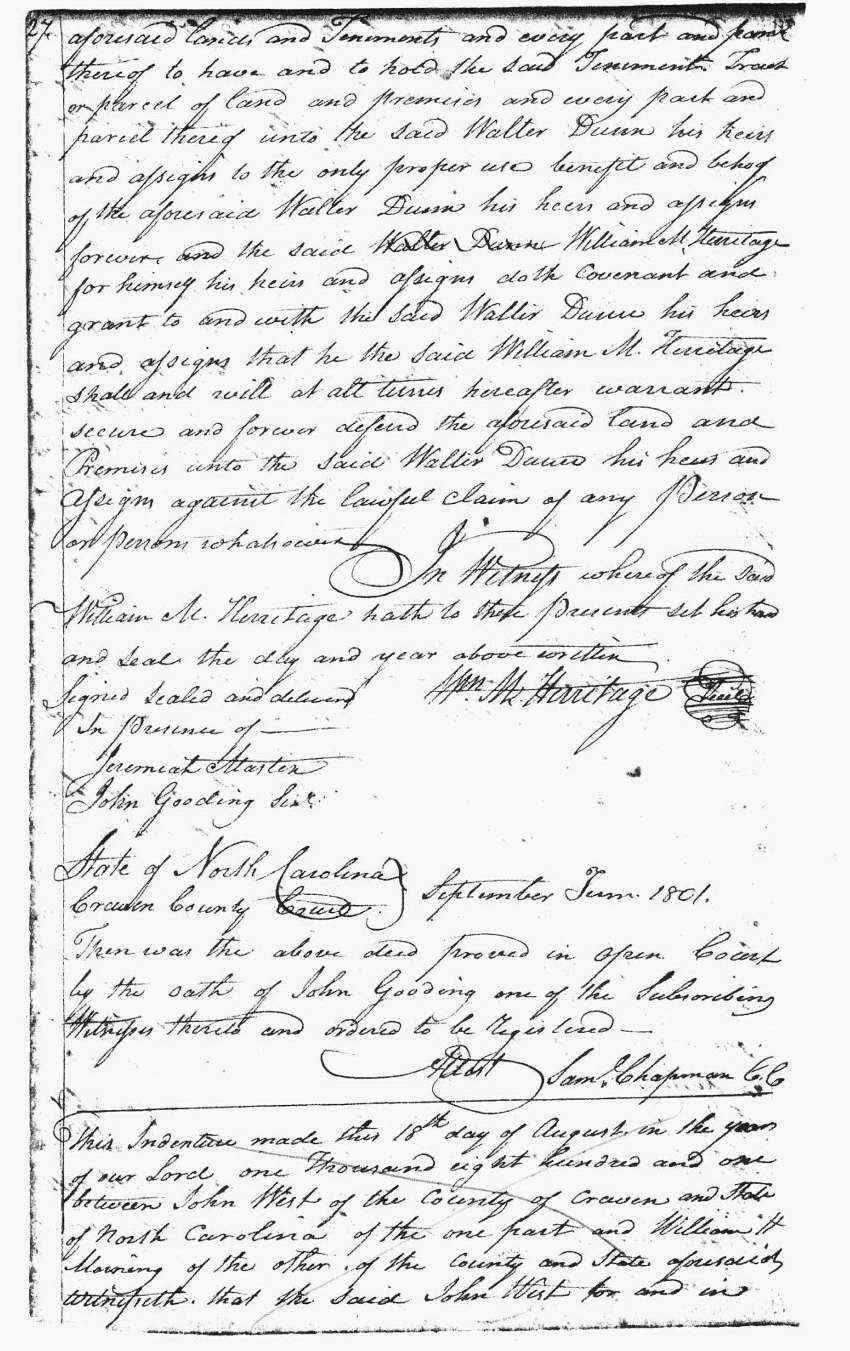 27
aforesaid Lands and Teniments and every part and parcel
thereof to have and to hold the said Teniment Tract
or parcel of land and premises and every part and
parcel thereof unto the said Walter Dunn his heirs
and assigns to the only proper use benefit and behoof
of the aforesaid Walter Dunn his heirs and assigns
forever, and the said Walter Dunn William M. Herritage
for himself his heirs and assigns doth Covenant and
grant to and with the said Walter Dunn his heirs
and assigns that he the said William M. Herritage
shall and will at all times hereafter warrant
secure and forever defend the aforesaid land and
Premises unto the said Walter Dunn his heirs and
Assigns against the lawful claim of any Person
or persons whatsoever
In Witness whereof the said
William M. Herritage hath to these Presents set his hand
and seal the day and year above written
Signed Sealed and deliverd Wm. M. Haritage Seal
In Presence of
Jeremiah Masten
John Gooding Senr.
State of North Carolina
Craven County Court } September Term 1801.
Then was the above deed proved in open Court
by the oath of John Gooding one of the Subscribing
Witnesses thereto and ordered to be registered
Attest Saml. Chapman C.C
This Indenture made this 18th day of August in the year
of our Lord one Thousand eight hundred and one
between John West of the County of Craven and State
of North Carolina of the one part and William H
Moining of the other of the County and State aforesaid
witnesseth that the said John West for and in